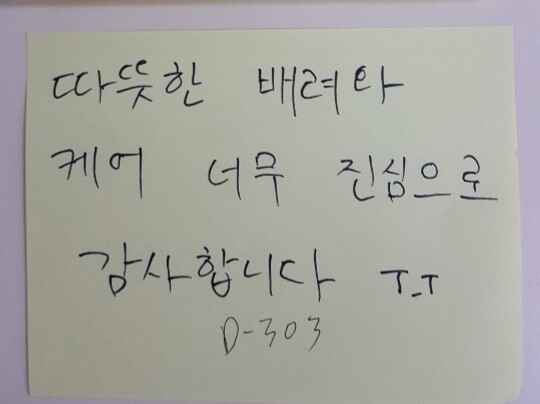 따뜻한 배려와
케어 너무 진심으로
감사합니다 T_T
D-303